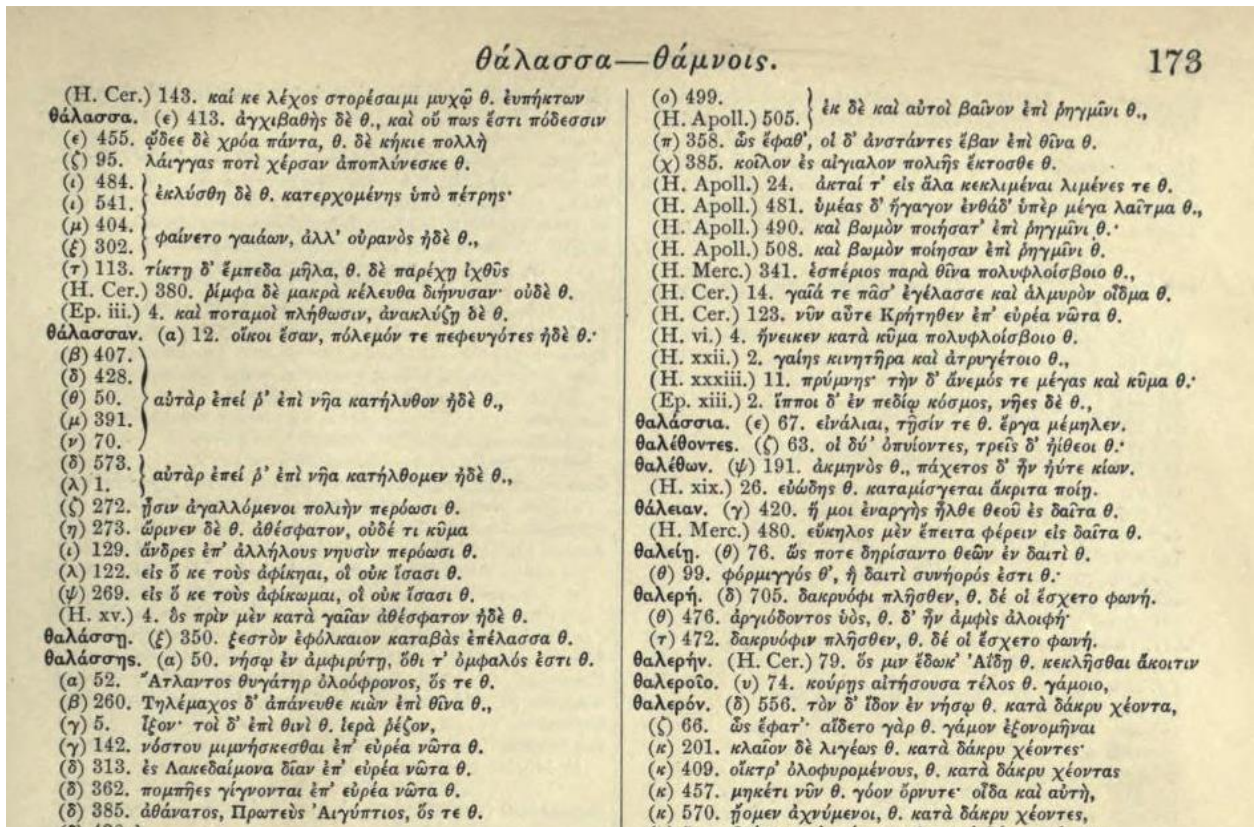 θάλασσα—θάμνοις. 173
(H. Cer.) 143. καί κε λέχος στορέσαιμι μυχῷ θ. ἐυπήκτων
θάλασσα. (ε) 413. ἀγχιβαθὴς δὲ θ., καὶ οὔ πως ἔστι πόδεσσιν
(ε) 455. ᾤδεε δὲ χρόα πάντα, θ. δὲ κήκιε πολλὴ
(ζ) 95. λάιγγας ποτὶ χέρσον ἀποπλύνεσκε θ.
(ι) 484.
(ι) 541.
ἐκλύσθη δὲ θ. κατερχομένης ὑπὸ πέτρης·
(μ) 404.
(ξ) 302.
φαίνετο γαιάων, ἀλλ' οὐρανὸς ἠδὲ θ.,
(τ) 113. τίκτῃ δ' ἔμπεδα μῆλα, θ. δὲ παρέχῃ ἰχθῦς
(H. Cer.) 380. ῥίμφα δὲ μακρὰ κέλευθα διήνυσαν· οὐδὲ θ.
(Ep. iii.) 4. καὶ ποταμοὶ πλήθωσιν, ἀνακλύζῃ δὲ θ.
θάλασσαν. (α) 12. οἴκοι ἔσαν, πόλεμόν τε πεφευγότες ἠδὲ θ.·
(β) 407.
(δ) 428.
(θ) 50.
(μ) 391.
(ν) 70.
αὐτὰρ ἐπεί ῥ' ἐπὶ νῆα κατήλυθον ἠδὲ θ.,
(δ) 573.
(λ) 1.
αὐτὰρ ἐπεί ῥ' ἐπὶ νῆα κατήλθομεν ἠδὲ θ.,
(ζ) 272. ᾗσιν ἀγαλλόμενοι πολιὴν περόωσι θ.
(η) 273. ὤρινεν δὲ θ. ἀθέσφατον, οὐδέ τι κῦμα
(ι) 129. ἄνδρες ἐπ' ἀλλήλους νηυσὶν περόωσι θ.
(λ) 122. εἰς ὅ κε τοὺς ἀφίκηαι, οἳ οὐκ ἴσασι θ.
(ψ) 269. εἰς ὅ κε τοὺς ἀφίκωμαι, οἳ οὐκ ἴσασι θ.
(H. xv.) 4. ὃς πρὶν μὲν κατὰ γαῖαν ἀθέσφατον ἠδὲ θ.
θαλάσσῃ. (ξ) 350. ξεστὸν ἐφόλκαιον καταβὰς ἐπέλασσα θ.
θαλάσσης. (α) 50. νήσῳ ἐν ἀμφιρύτῃ, ὅθι τ' ὀμφαλός ἐστι θ.
(α) 52. Ἄτλαντος θυγάτηρ ὀλοόφρονος, ὅς τε θ.
(β) 260. Τηλέμαχος δ' ἀπάνευθε κιὼν ἐπὶ θῖνα θ.,
(γ) 5. ἷξον· τοὶ δ' ἐπὶ θινὶ θ. ἱερὰ ῥέζον,
(γ) 142. νόστου μιμνήσκεσθαι ἐπ' εὐρέα νῶτα θ.
(δ) 313. ἐς Λακεδαίμονα δῖαν ἐπ' εὐρέα νῶτα θ.
(δ) 362. πομπῆες γίγνονται ἐπ' εὐρέα νῶτα θ.
(δ) 385. ἀθάνατος, Πρωτεὺς Αἰγύπτιος, ὅς τε θ.
(ο) 499.
(H. Apoll.) 505.
ἐκ δὲ καὶ αὐτοὶ βαῖνον ἐπὶ ῥηγμῖνι θ.,
(π) 358. ὣς ἔφαθ', οἱ δ' ἀνστάντες ἔβαν ἐπὶ θῖνα θ.
(χ) 385. κοῖλον ἐς αἰγιαλὸν πολιῆς ἔκτοσθε θ.
(H. Apoll.) 24. ἀκταί τ' εἰς ἅλα κεκλιμέναι λιμένες τε θ.
(H. Apoll.) 481. ὑμέας δ' ἤγαγον ἐνθάδ' ὑπὲρ μέγα λαῖτμα θ.,
(H. Apoll.) 490. καὶ βωμὸν ποιήσατ' ἐπὶ ῥηγμῖνι θ.·
(H. Apoll.) 508. καὶ βωμὸν ποίησαν ἐπὶ ῥηγμῖνι θ.
(H. Merc.) 341. ἑσπέριος παρὰ θῖνα πολυφλοίσβοιο θ.,
(H. Cer.) 14. γαῖά τε πᾶσ' ἐγέλασσε καὶ ἁλμυρὸν οἶδμα θ.
(H. Cer.) 123. νῦν αὖτε Κρήτηθεν ἐπ' εὐρέα νῶτα θ.
(H. vi.) 4. ἤνεικεν κατὰ κῦμα πολυφλοίσβοιο θ.
(H. xxii.) 2. γαίης κινητῆρα καὶ ἀτρυγέτοιο θ.,
(H. xxxiii.) 11. πρύμνης· τὴν δ' ἄνεμός τε μέγας καὶ κῦμα θ.·
(Ep. xiii.) 2. ἵπποι δ' ἐν πεδίῳ κόσμος, νῆες δὲ θ.,
θαλάσσια. (ε) 67. εἰνάλιαι, τῇσίν τε θ. ἔργα μέμηλεν.
θαλέθοντες. (ζ) 63. οἱ δύ' ὀπυίοντες, τρεῖς δ' ἠίθεοι θ.·
θαλέθων. (ψ) 191. ἀκμηνὸς θ., πάχετος δ' ἦν ἠύτε κίων.
(H. xix.) 26. εὐώδης θ. καταμίσγεται ἄκριτα ποίῃ.
θάλειαν. (γ) 420. ἥ μοι ἐναργὴς ἦλθε θεοῦ ἐς δαῖτα θ.
(H. Merc.) 480. εὔκηλος μὲν ἔπειτα φέρειν εἰς δαῖτα θ.
θαλείῃ. (θ) 76. ὥς ποτε δηρίσαντο θεῶν ἐν δαιτὶ θ.
(θ) 99. φόρμιγγός θ', ἣ δαιτὶ συνήορός ἐστι θ.·
θαλερή. (δ) 705. δακρυόφι πλῆσθεν, θ. δέ οἱ ἔσχετο φωνή.
(θ) 476. ἀργιόδοντος ὑός, θ. δ' ἦν ἀμφὶς ἀλοιφή·
(τ) 472. δακρυόφιν πλῆσθεν, θ. δέ οἱ ἔσχετο φωνή.
θαλερήν. (H. Cer.) 79. ὅς μιν ἔδωκ' Ἀΐδῃ θ. κεκλῆσθαι ἄκοιτιν
θαλεροῖο. (υ) 74. κούρῃς αἰτήσουσα τέλος θ. γάμοιο,
θαλερόν. (δ) 556. τὸν δ' ἴδον ἐν νήσῳ θ. κατὰ δάκρυ χέοντα,
(ζ) 66. ὣς ἔφατ'· αἴδετο γὰρ θ. γάμον ἐξονομῆναι
(κ) 201. κλαῖον δὲ λιγέως θ. κατὰ δάκρυ χέοντες·
(κ) 409. οἴκτρ' ὀλοφυρομένους, θ. κατὰ δάκρυ χέοντας
(κ) 457. μηκέτι νῦν θ. γόον ὄρνυτε· οἶδα καὶ αὐτὴ,
(κ) 570. ᾔομεν ἀχνύμενοι, θ. κατὰ δάκρυ χέοντες,